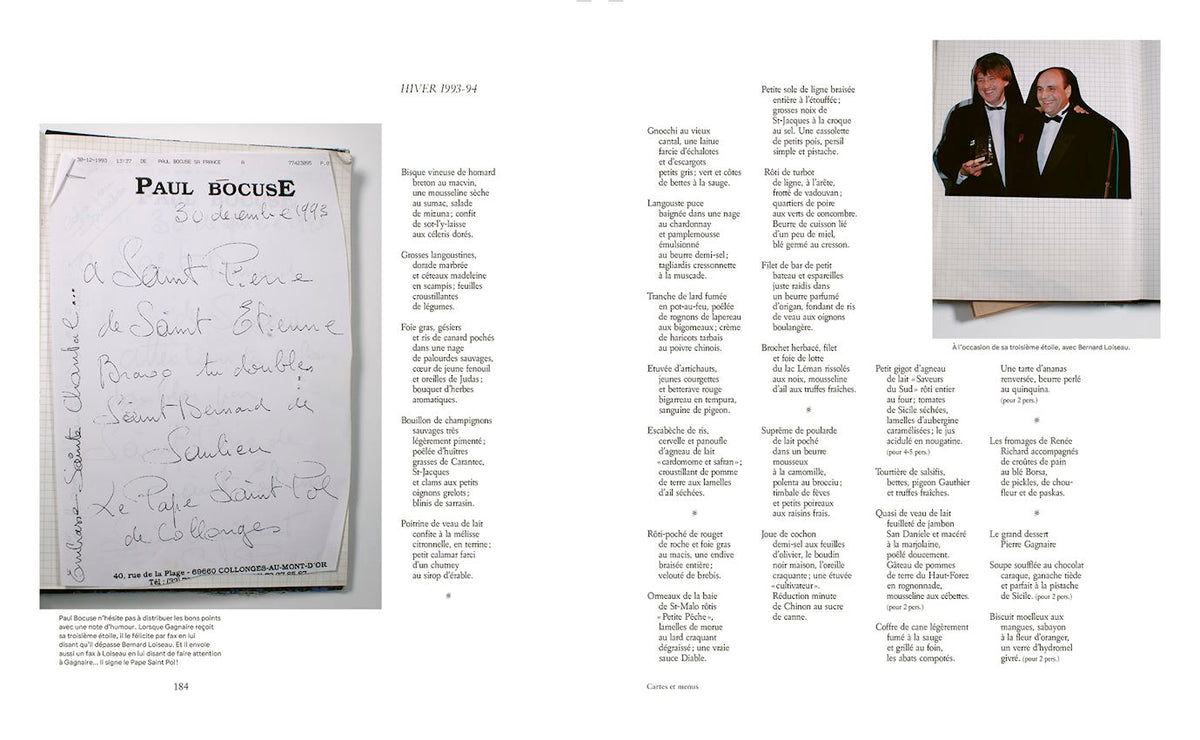 30-12-1993 13:27 DE PAUL BOCUSE SA FRANCE A 77423095 P.0
PAUL BOCUSE
30 decembre 1993
a Saint Pierre
de Saint Etienne
Bravo tu doubles
Saint Bernard de
Saulieu
Le Pape Saint Pol
de Collonges
Embrasse Sainte Chantal...
40, rue de la Plage - 69660 COLLONGES-AU-MONT-D'OR
Paul Bocuse n'hésite pas à distribuer les bons points
avec une note d'humour. Lorsque Gagnaire reçoit
sa troisième étoile, il le félicite par fax en lui
disant qu'il dépasse Bernard Loiseau. Et il envoie
aussi un fax à Loiseau en lui disant de faire attention
à Gagnaire... Il signe le Pape Saint Pol !
184
HIVER 1993-94
Bisque vineuse de homard
breton au macvin,
une mousseline sèche
au sumac, salade
de mizuna ; confit
de sot-l'y-laisse
aux céleris dorés.
Grosses langoustines,
dorade marbrée
et céteaux madeleine
en scampis ; feuilles
croustillantes
de légumes.
Foie gras, gésiers
et ris de canard pochés
dans une nage
de palourdes sauvages,
cœur de jeune fenouil
et oreilles de Judas ;
bouquet d'herbes
aromatiques.
Bouillon de champignons
sauvages très
légèrement pimenté ;
poêlée d'huîtres
grasses de Carantec,
St-Jacques
et clams aux petits
oignons grelots ;
blinis de sarrasin.
Poitrine de veau de lait
confite à la mélisse
citronnelle, en terrine ;
petit calamar farci
d'un chutney
au sirop d'érable.
Gnocchi au vieux
cantal, une laitue
farcie d'échalotes
et d'escargots
petits gris ; vert et côtes
de bettes à la sauge.
Langouste puce
baignée dans une nage
au chardonnay
et pamplemousse
émulsionné
au beurre demi-sel ;
tagliardis cressonnette
à la muscade.
Tranche de lard fumée
en pot-au-feu, poêlée
de rognons de lapereau
aux bigorneaux ; crème
de haricots tarbais
au poivre chinois.
Etuvée d'artichauts,
jeunes courgettes
et betterave rouge
bigarreau en tempura,
sanguine de pigeon.
Escabèche de ris,
cervelle et panoufle
d'agneau de lait
« cardomome et safran » ;
croustillant de pomme
de terre aux lamelles
d'ail séchées.
Rôti-poché de rouget
de roche et foie gras
au macis, une endive
braisée entière ;
velouté de brebis.
Ormeaux de la baie
de St-Malo rôtis
« Petite Pêche »,
lamelles de morue
au lard craquant
dégraissé ; une vraie
sauce Diable.
Cartes et menus
Petite sole de ligne braisée
entière à l'étouffée ;
grosses noix de
St-Jacques à la croque
au sel. Une cassolette
de petits pois, persil
simple et pistache.
Rôti de turbot
de ligne, à l'arête,
frotté de vadouvan ;
quartiers de poire
aux verts de concombre.
Beurre de cuisson lié
d'un peu de miel,
blé germé au cresson.
Filet de bar de petit
bateau et espareilles
juste raidis dans
un beurre parfumé
d'origan, fondant de ris
de veau aux oignons
boulangère.
Brochet herbacé, filet
et foie de lotte
du lac Léman rissolés
aux noix, mousseline
d'ail aux truffes fraîches.
Suprême de poularde
de lait poché
dans un beurre
mousseux
à la camomille,
polenta au brocciu ;
timbale de fèves
et petits poireaux
aux raisins frais.
Joue de cochon
demi-sel aux feuilles
d'olivier, le boudin
noir maison, l'oreille
craquante ; une étuvée
« cultivateur ».
Réduction minute
de Chinon au sucre
de canne.
À l'occasion de sa troisième étoile, avec Bernard Loiseau.
Petit gigot d'agneau
de lait « Saveurs
du Sud » rôti entier
au four ; tomates
de Sicile séchées,
lamelles d'aubergine
caramélisées ; le jus
acidulé en nougatine.
(pour 4-5 pers.)
Tourtière de salsifis,
bettes, pigeon Gauthier
et truffes fraîches.
Quasi de veau de lait
feuilleté de jambon
San Daniele et macéré
à la marjolaine,
poêlé doucement.
Gâteau de pommes
de terre du Haut-Forez
en rognonnade,
mousseline aux cébettes.
(pour 2 pers.)
Coffre de cane légèrement
fumé à la sauge
et grillé au foin,
les abats compotés.
Une tarte d'ananas
renversée, beurre perlé
au quinquina.
(pour 2 pers.)
Les fromages de Renée
Richard accompagnés
de croûtes de pain
au blé Borsa,
de pickles, de chou-
fleur et de paskas.
Le grand dessert
Pierre Gagnaire
Soupe soufflée au chocolat
caraque, ganache tiède
et parfait à la pistache
de Sicile. (pour 2 pers.)
Biscuit moelleux aux
mangues, sabayon
à la fleur d'oranger,
un verre d'hydromel
givré. (pour 2 pers.)